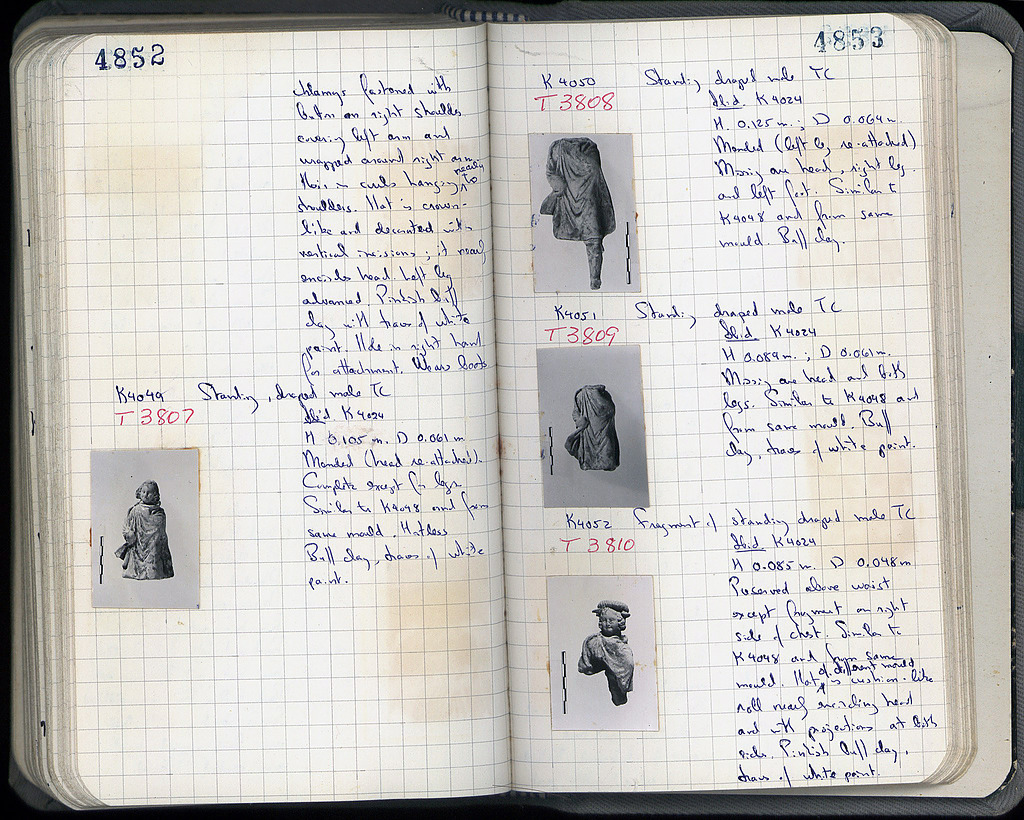 4852
chlamys fastened with
button on right shoulder
covering left arm and
wrapped around right arm.
Hair in curls hanging nearly to
shoulders. Hat is crown-
like and decorated with
vertical incisions; it nearly
encircles head. Left leg
advanced. Pinkish buff
clay with traces of white
paint. Hole in right hand
for attachment. Wears boots
K4049 Standing, draped male TC
T 3807
Ibid K4024
H 0.105 m. D 0.061 m
Mended (head re-attached).
Complete except for legs.
Similar to K4048 and from
same mould. Hatless
Buff clay, traces of white
paint.
4853
K4050 Standing draped male TC
T 3808
Ibid. K4024
H. 0.125 m.; D 0.064 m.
Mended (left leg re-attached)
Missing are head, right leg.
and left foot. Similar to
K4048 and from same
mould. Buff clay.
K4051 Standing draped male TC
T 3809
Ibid. K4024
H 0.089 m.; D 0.061 m.
Missing are head and both
legs. Similar to K4048 and
from same mould. Buff
clay, traces of white paint.
K4052 Fragment of standing draped male TC
T 3810
Ibid. K4024
H 0.085 m. D 0.048 m
Preserved above waist
except fragment on right
side of chest. Similar to
K4048 and from same
mould. Hat of different mould is cushion-like
roll nearly encircling head
and with projections at both
sides. Pinkish buff clay,
traces of white paint.